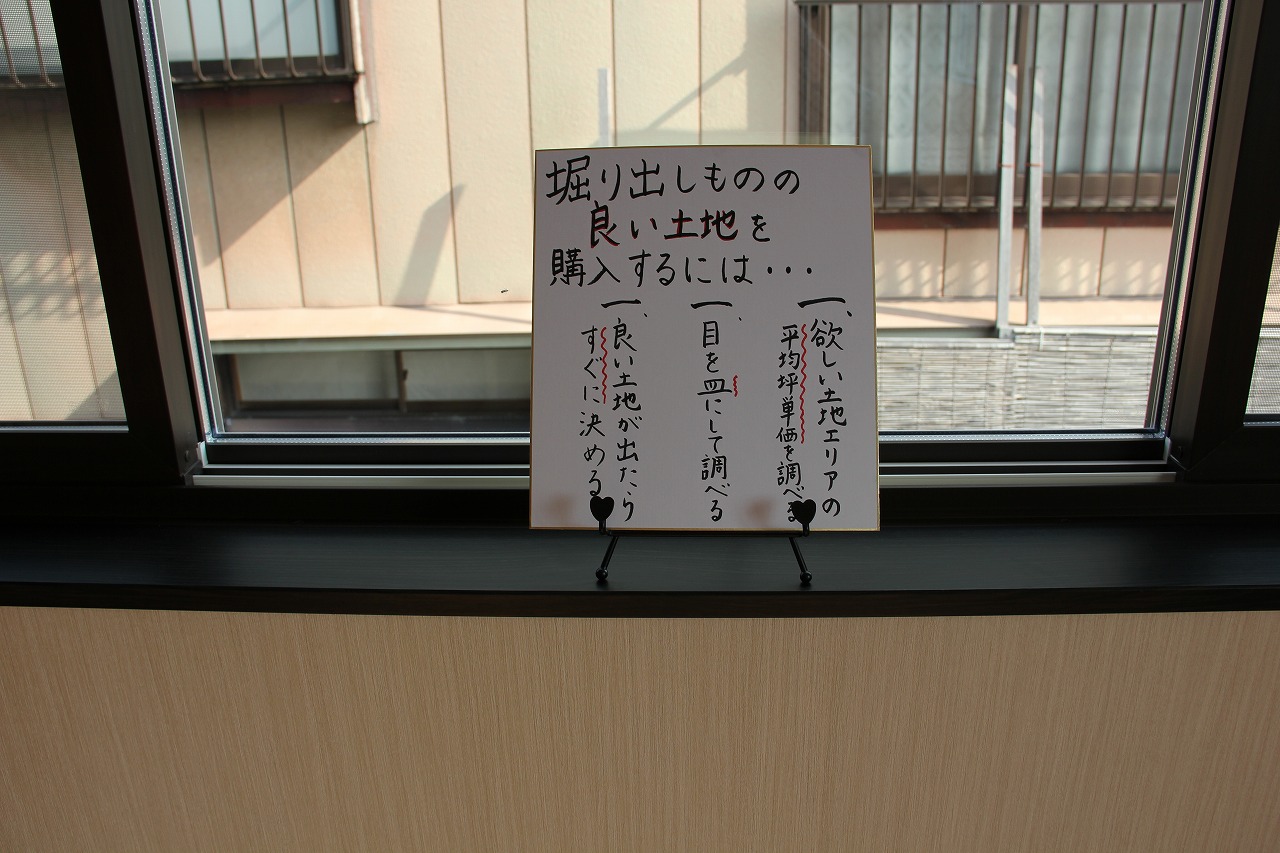 堀り出しものの
良い土地を
購入するには・・・
一、欲しい土地エリアの
平均坪単価を調べる
一、目を皿にして調べる
一、良い土地が出たら
すぐに決める